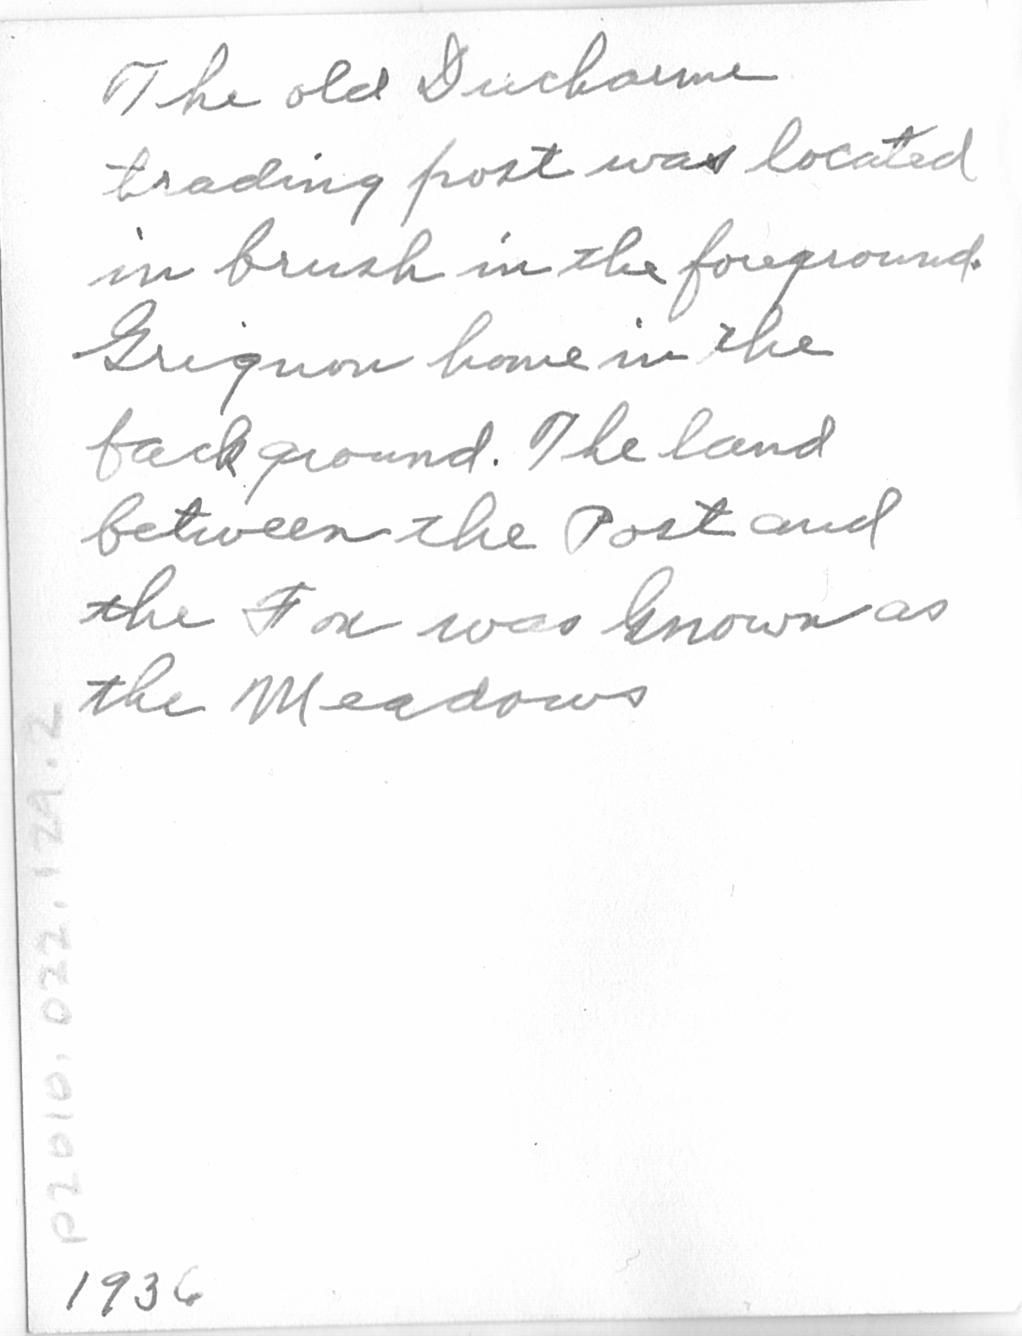 The old Ducharme
trading post was located
in brush in the foreground.
Grignon home in the
background. The land
between the Post and
the Fox was known as
the Meadows
P2010.022.129.2
1936